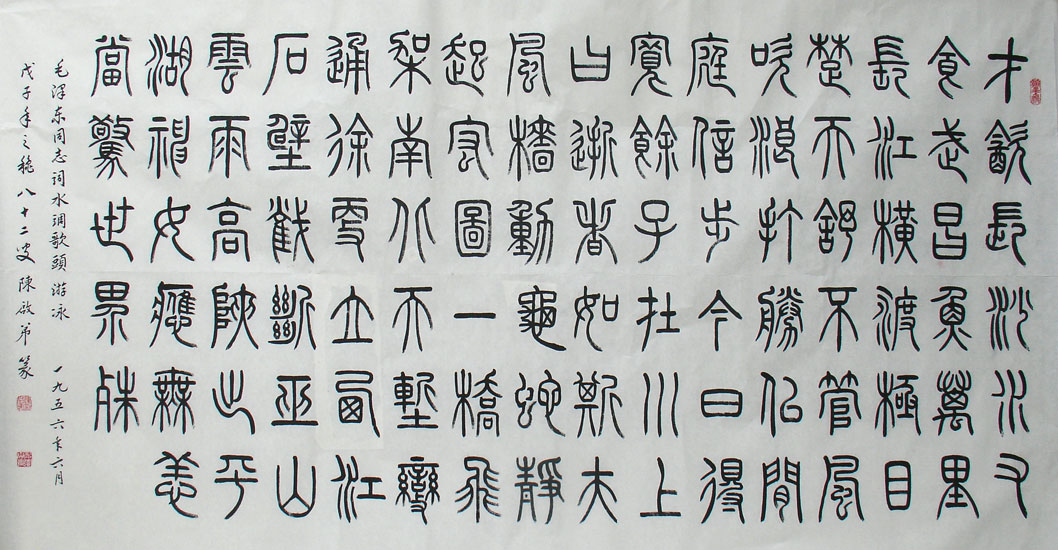 才飲長沙水又
食武昌魚萬里
長江橫渡極目
楚天舒不管風
吹浪打勝似閒
庭信步今日得
寬餘子在川上
曰逝者如斯夫
風檣動龜蛇靜
起宏圖一橋飛
架南北天塹變
通途更立西江
石壁截斷巫山
雲雨高峽出平
湖神女應無恙
當驚世界殊
毛澤东同志詞水調歌頭游泳 一九五六年六月
戊子年之秋八十二叟陳啟弟篆